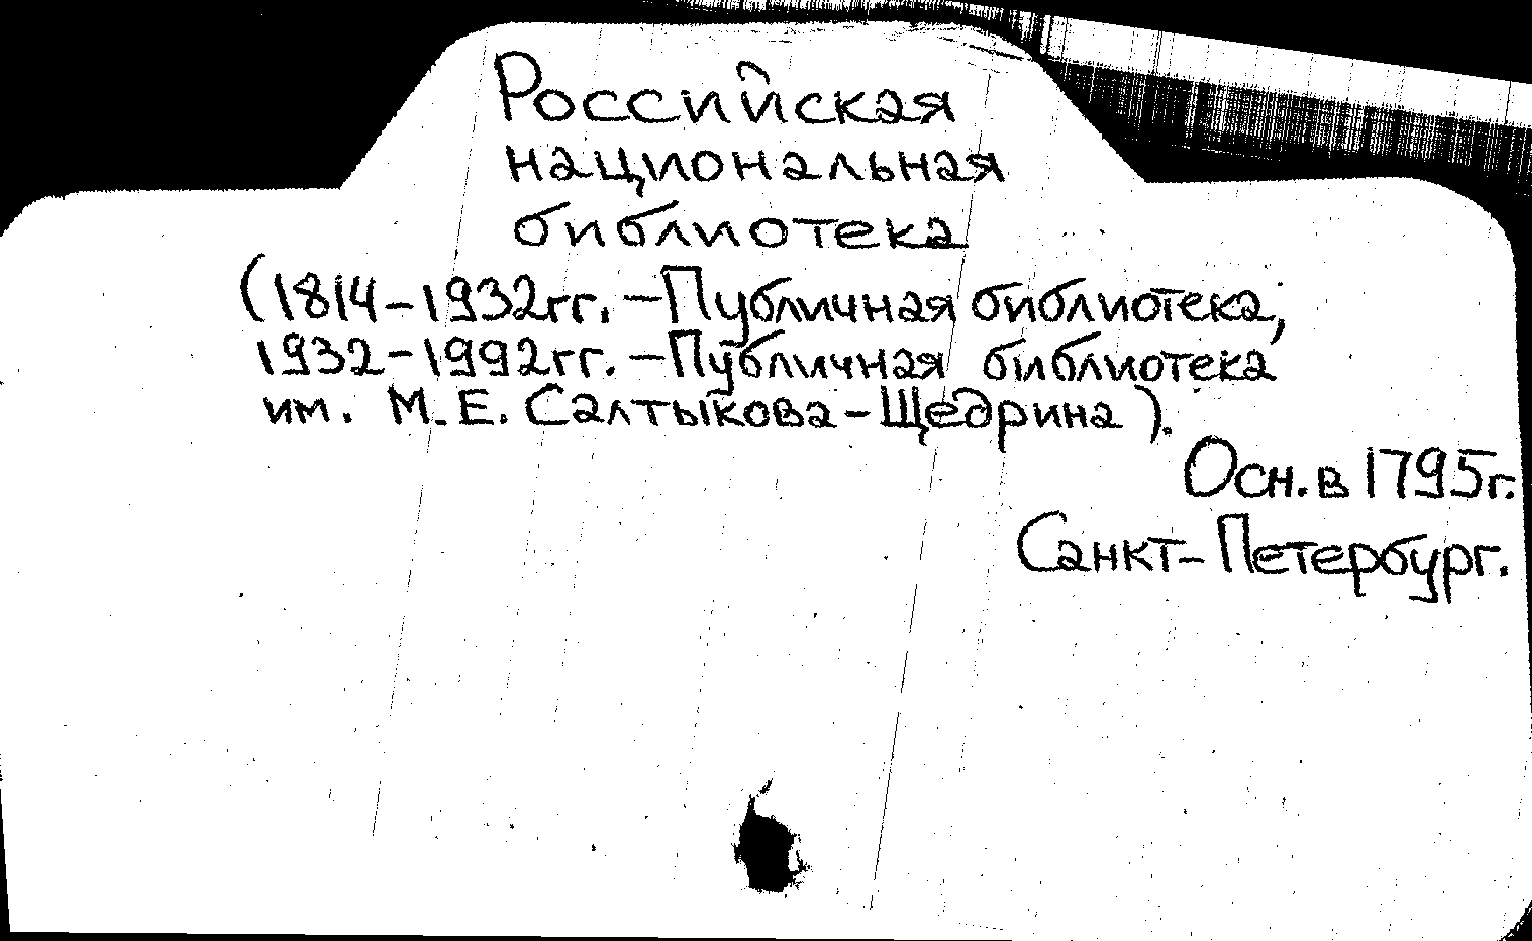 Российская
национальная
библиотека
(1814-1932гг. - Публичная библиотека,
1932-1992гг. - Публичная библиотека
им. М.Е. Салтыкова-Щедрина).
Осн. в 1795г.
Санкт-Петербург.